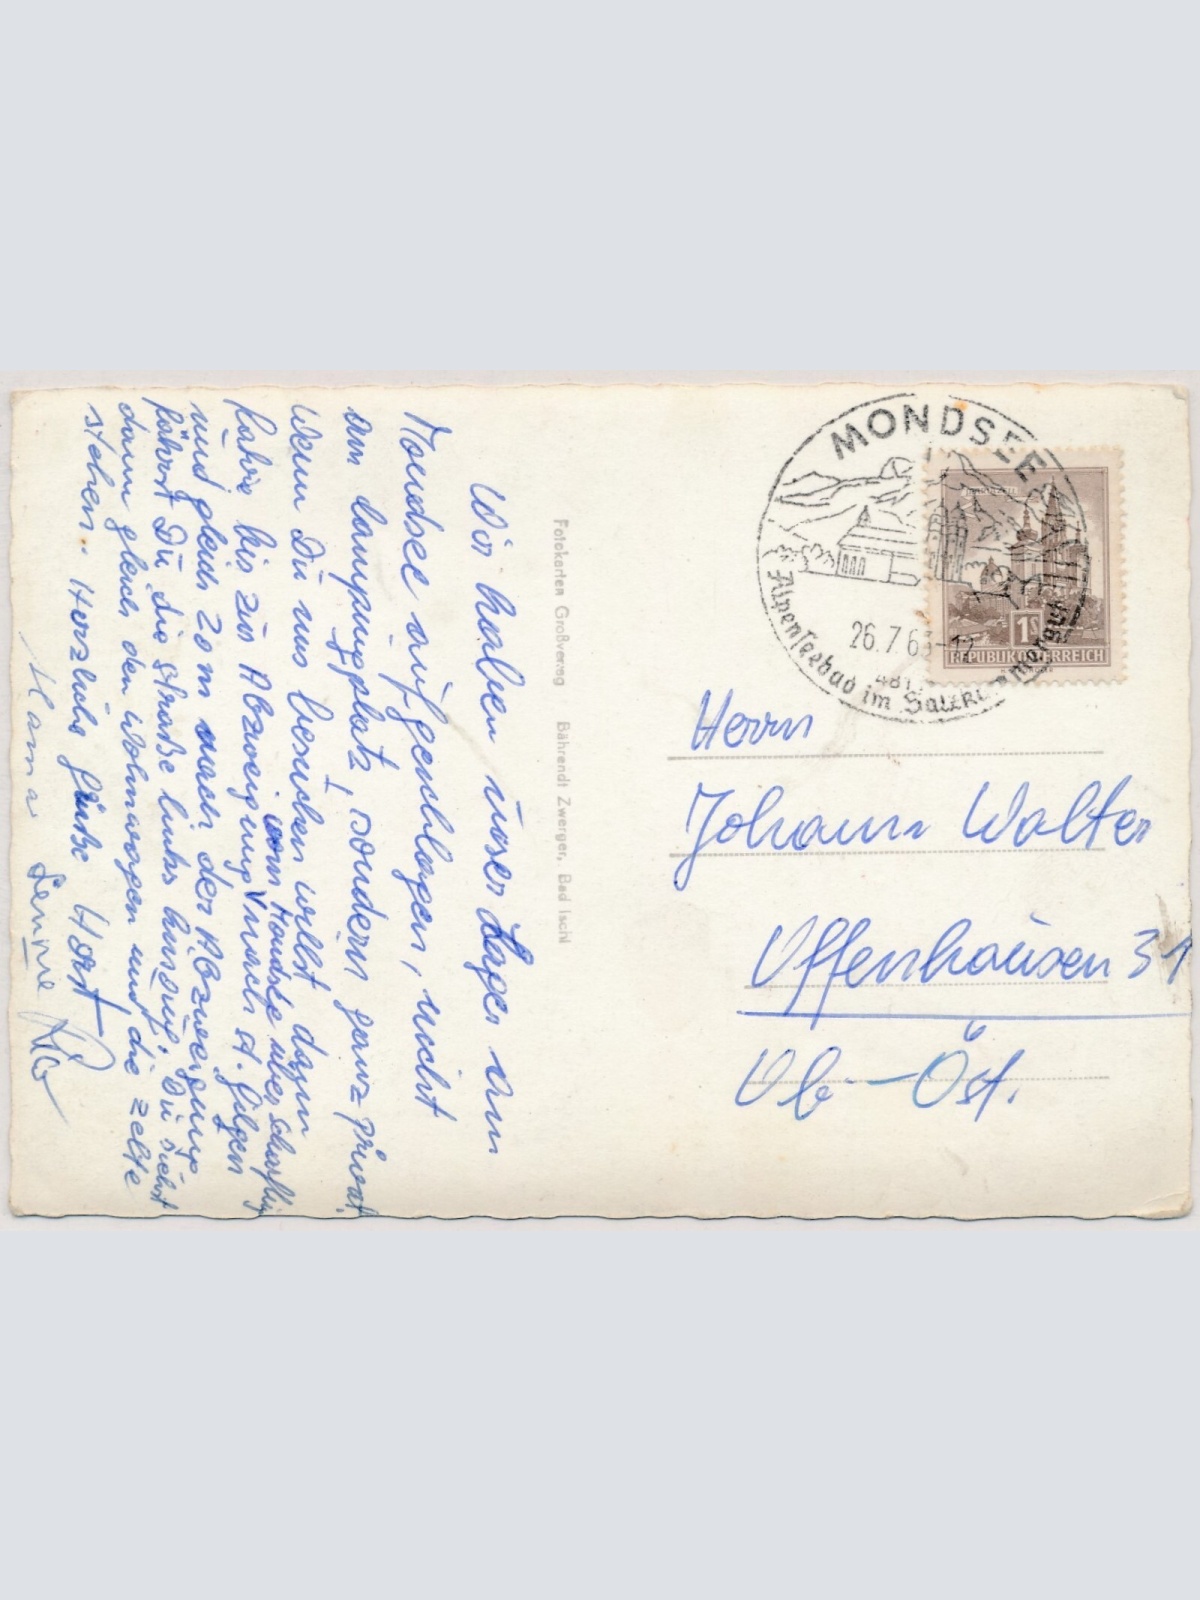 Wir haben unser Lager am
Mondsee aufgeschlagen, nicht
am Campingplatz, sondern ganz privat.
Wenn Du uns besuchen willst dann
fahre bis zur Abzweigung nach St. Gilgen
vom Mondsee über Scharfling
und gleich 20 m nach der Abzweigung
fährst Du die Straße links hinauf. Du siehst
dann gleich den Wohnwagen und die Zelte
stehen. Herzliche Grüße Horst
Fotokarten Großverlag Bährendt Zwerger, Bad Ischl
MONDSEE
26.7.6 -12
Alpenseebad im Salzkammergut
1S
REPUBLIK ÖSTERREICH
Herrn
Johann Walter
Offenhausen 31
Ob-Öst.